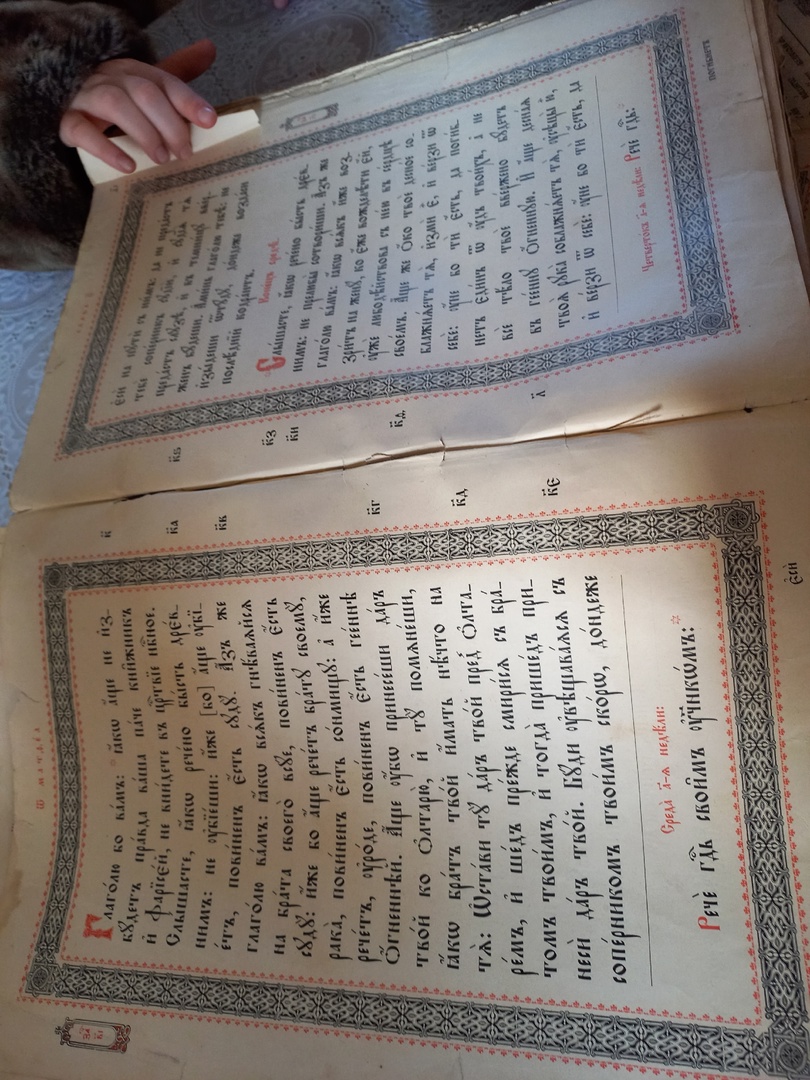 Глаго́лю бо ва́мъ: ꙗ҆́кѡ а҆́ще не и҆з-
бꙋ́детъ пра́вда ва́ша па́че кни́жникъ
и҆ фарїсе́й, не вни́дете въ црⷭ҇твїе нбⷭ҇ное.
Слы́шасте, ꙗ҆́кѡ рече́но бы́сть дре́в-
нимъ: не ᲂу҆бїе́ши: и҆́же [бо] а҆́ще ᲂу҆бї-
е́тъ, пови́ненъ є҆́сть сꙋдꙋ̀. А҆́зъ же
глаго́лю ва́мъ: ꙗ҆́кѡ всѧ́къ гнѣ́ваѧйсѧ
на бра́та своего̀ всꙋ́е, пови́ненъ є҆́сть
сꙋдꙋ̀: и҆́же бо а҆́ще рече́тъ бра́тꙋ своемꙋ̀,
рака̀, пови́ненъ є҆́сть со́нмищꙋ: а҆ и҆́же
рече́тъ, ᲂу҆ро́де, пови́ненъ є҆́сть гее́ннѣ
Ѻ҆́гненнѣй. А҆́ще ᲂу҆̀бѡ принесе́ши да́ръ
тво́й ко Ѻ҆лтарю̀, и҆ тꙋ̀ помѧне́ши,
ꙗ҆́кѡ бра́тъ тво́й и҆́мать нѣ́что на
тѧ̀: Ѡ҆ста́ви тꙋ̀ да́ръ тво́й пред̾ Ѻ҆лта-
ре́мъ, и҆ ше́дъ пре́жде смири́сѧ съ бра́-
томъ твои́мъ, и҆ тогда̀ прише́дъ при-
несѝ да́ръ тво́й. Бꙋ́ди ᲂу҆вѣщава́ѧсѧ съ
сопе́рникомъ твои́мъ ско́рѡ, до́ндеже
Среда̀ а҃-ѧ недѣ́ли:
Речѐ гдⷭ҇ь свои҄мъ ᲂу҆ч҃нкѡ́мъ:
є҆сѝ
к҃
к҃а
к҃в
к҃г
к҃д
к҃є
є҆сѝ на пꙋтѝ съ ни́мъ: да не преда́стъ
тебѐ сопе́рникъ сꙋдїѝ, и҆ сꙋдїѧ̀ тѧ̀
преда́стъ слꙋзѣ̀, и҆ въ темни́цꙋ вве́р-
женъ бꙋ́деши. А҆ми́нь глаго́лю тебѣ̀: не
и҆зы́деши ѿтꙋ́дꙋ, до́ндеже возда́си
послѣ́днїй кодра́нтъ.
Коне́цъ средѣ̀.
Слы́шасте, ꙗ҆́кѡ рече́но бы́сть дре́в-
нимъ: не прелюбы̀ сотвори́ши. А҆́зъ же
глаго́лю ва́мъ: ꙗ҆́кѡ всѧ́къ и҆́же воз-
зри́тъ на женꙋ̀, ко є҆́же вожделѣ́ти є҆́й,
ᲂу҆жѐ любодѣ́йствова съ не́ю въ се́рдцѣ
свое́мъ. А҆́ще же Ѻ҆́ко твоѐ десно́е со-
блажнѧ́етъ тѧ̀, и҆змѝ є҆̀, и҆ ве́рзи ѿ
себє̀: ᲂу҆́не бо тѝ є҆́сть, да поги́б-
нетъ є҆ди́нъ ѿ ᲂу҆́дъ твои́хъ, а҆ не
всѐ тѣ́ло твоѐ вве́ржено бꙋ́детъ
въ гее́ннꙋ Ѻ҆́гненнꙋю. И҆ а҆́ще десна́ѧ
твоѧ̀ рꙋка̀ соблажнѧ́етъ тѧ̀, ᲂу҆сѣцы̀ ю҆̀,
и҆ ве́рзи ѿ себє̀: ᲂу҆́не бо тѝ є҆́сть, да
Четверто́къ а҃-ѧ недѣ́ли: Речѐ гдⷭ҇ь:
поги́бнетъ
к҃ѕ
к҃з
к҃и
к҃ѳ
л҃